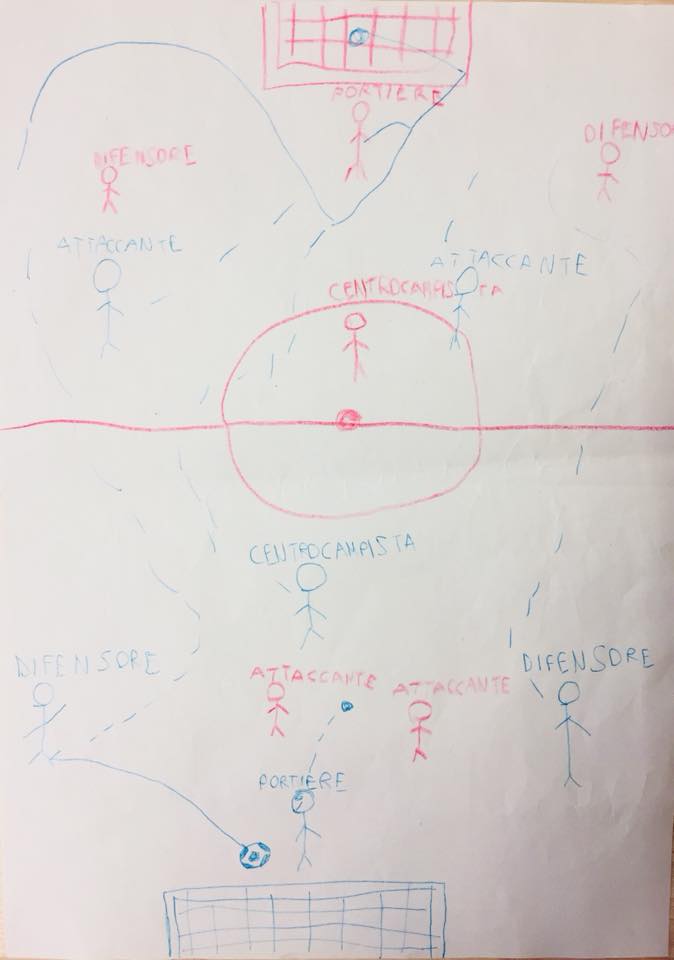 PORTIERE
DIFENSO
DIFENSORE
ATTACCANTE
ATTACCANTE
CENTROCAMPISTA
CENTROCAMPISTA
DIFENSORE
DIFENSORE
ATTACCANTE
ATTACCANTE
PORTIERE